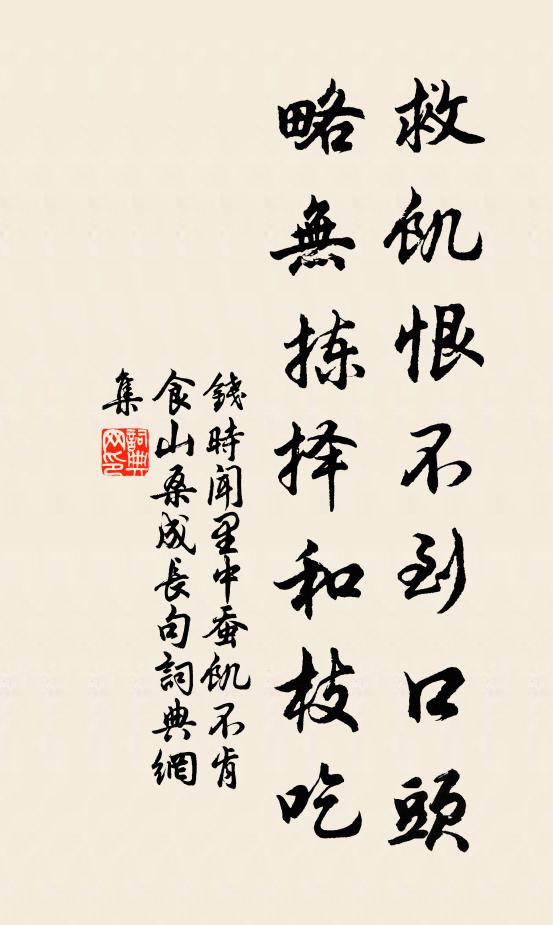 救飢恨不到口頭
略無拣择和枝吃
錢時闻里中蚕飢不肯
食山桑成長句詞典網
集
詞典
网印